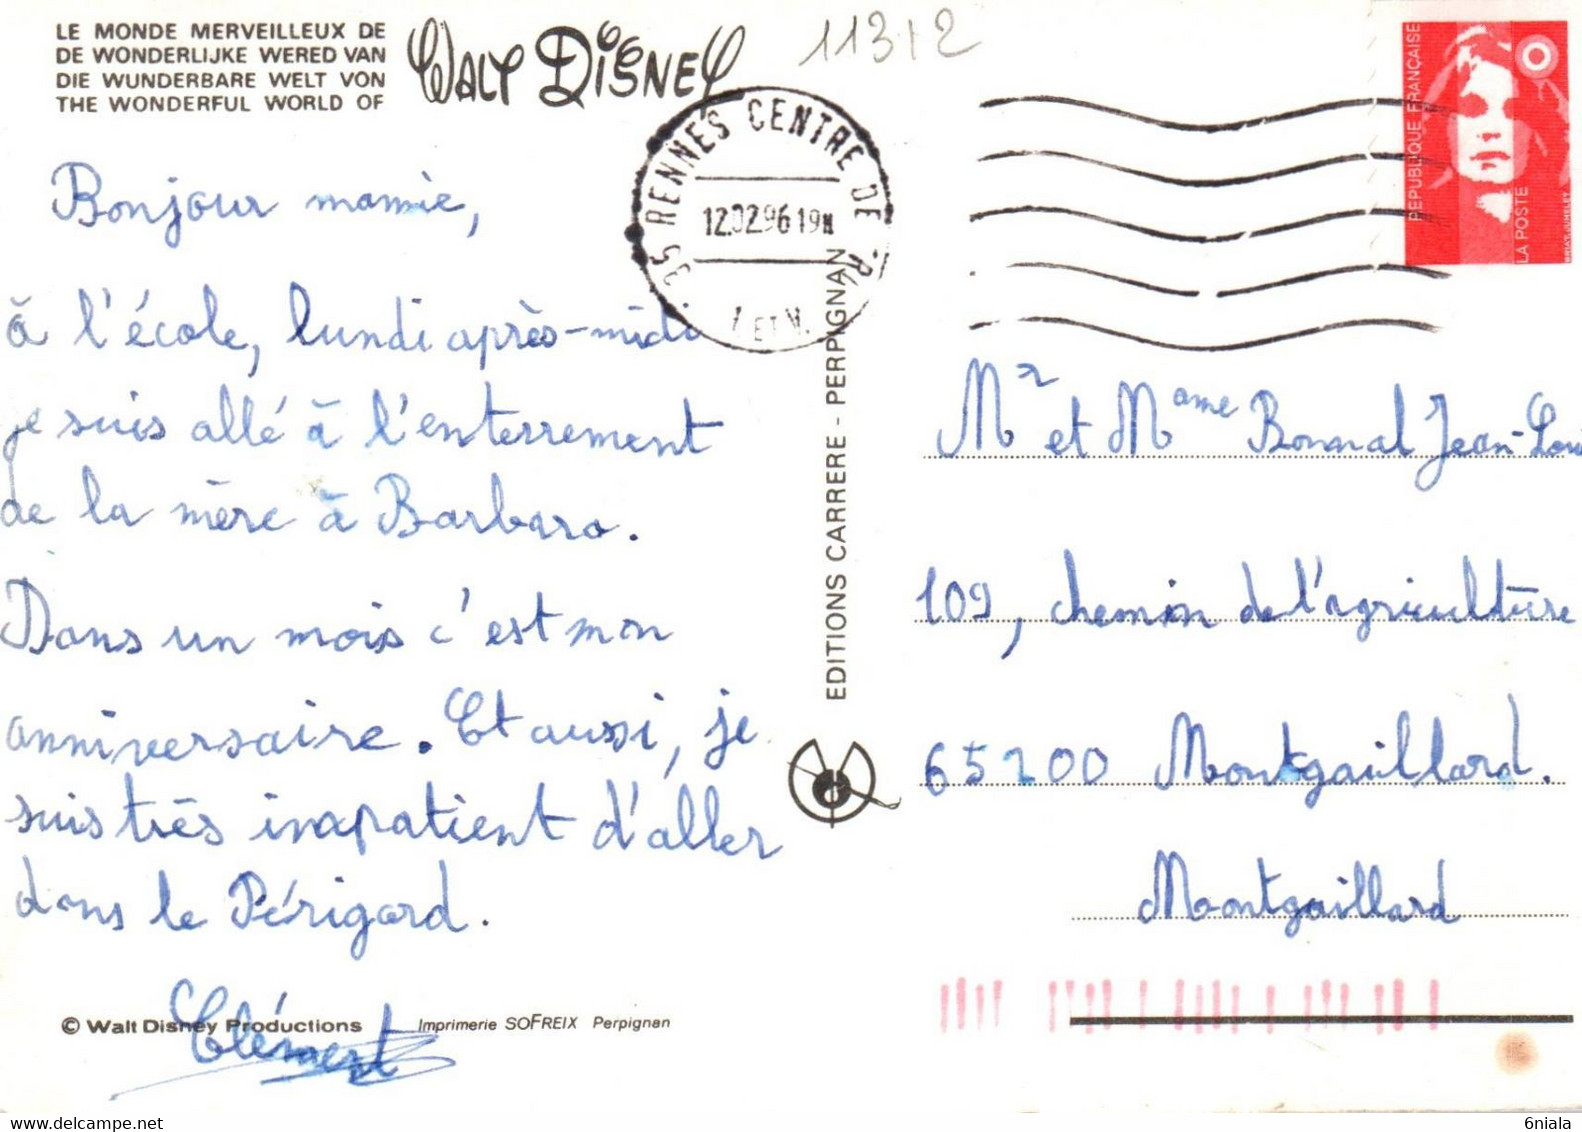 LE MONDE MERVEILLEUX DE
DE WONDERLIJKE WERED VAN
DIE WUNDERBARE WELT VON
THE WONDERFUL WORLD OF
WALT DISNEY
11312
35 RENNES CENTRE DE
12.02.96 19H
I ET V.
REPUBLIQUE FRANÇAISE
LA POSTE
Bonjour mamie,
à l'école, lundi après-midi
je suis allé à l'enterrement
de la mère à Barbara.
Dans un mois c'est mon
anniversaire. Et aussi, je
suis très inapatient d'aller
dans le Périgord.
Clément
© Walt Disney Productions
Imprimerie SOFREIX Perpignan
EDITIONS CARRERE - PERPIGNAN
Mr et Mame Bonnal Jean-Loui
109, chemin de l'agriculture
65200 Montgaillard.
Montgaillard
6niala